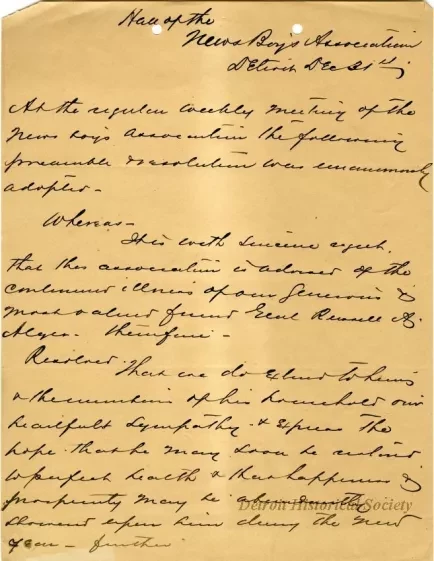 Hall of the
News Boy's Association
Detroit Dec 31st
At the regular weekly meeting of the
News boys association the following
preamble & resolution was unanimously
adopted -
Whereas -
It is with sincere regret.
that this association is advised of the
continued illness of our generous &
most valued friend Genl Russell A.
Alger. therefore -
Resolved. That we do extend to him
& the members of his household our
heartfelt sympathy & express the
hope that he may soon be restored
to perfect health & that happiness &
prosperity may be abundantly
showered upon him during the new
year - further
Detroit Historical Society